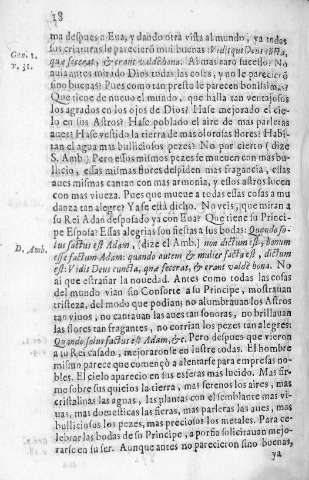 18
ma despues a Eua, y dando otra vista al mundo, ya todas
sus criaturas le parecierō mui buenas: Vidit que Deus cūcta,
Gen. 1.
v. 31.
que fecerat, & erant valdè bona. Ai mas raro sucesso? No
auia antes mirado Dios todas las cosas, y no le pareciērō
sino buenas? Pues como tan presto le parecen bonissimas?
Que tiene de nueuo el mundo, que halla tan ventajosos
los agrados en los ojos de Dios? Hase mejorado el cie-
lo en sus Astros? Hase poblado el aire de mas parleras
aues? Hase vestido la tierra de mas olorosas flores? Habi-
tan el agua mas bulliciosos pezes? No por cierto (dize
S. Amb.) Pero essos mismos pezes se mueuen con mas bu-
llicio, essas mismas flores despiden mas fragancia, essas
aues mismas cantan con mas armonia, y essos astros lucen
con mas viueza. Pues que mueue a todas essas cosas a mu-
dança tan alegre? Yase està dicho. No veis, que miran a
su Rei Adan desposado ya con Eua? Que tiene su Princi-
pe Esposa? Essas alegrias son fiestas a sus bodas: Quando so-
D. Amb.
lus factus est Adam, (dize el Amb.) non dictum est, bonum
esse factum Adam: quando autem & mulier facta est, dictum
est: Vidit Deus cuncta, quæ fecerat, & erant valdè bona. No
ai que estrañar la nouedad. Antes como todas las cosas
del mundo vian sin Consorte a su Principe, mostrauan
tristeza, del modo que podian; no alumbrauan los Astros
tan viuos, no cantauan las aues tan sonoras, no brillauan
las flores tan fragantes, no corrian los pezes tan alegres:
Quando solus factus est Adam, &c. Pero despues que vieron
a su Rei casado, mejoraronse en lustre todas. El hombre
mismo parece que començò a alentarse para empresas no-
bles. El cielo aparecio en sus esferas mas lucido. Mas fir-
me sobre sus quicios la tierra, mas serenos los aires, mas
cristalinas las aguas, las plantas con el semblante mas vi-
uas, mas domesticas las fieras, mas parleras las aues, mas
bulliciosos los pezes, mas preciosos los metales. Para ce-
lebrar las bodas de su Principe, a porfia solicitauan mejo-
rarse en su ser. Aunque antes no parecieron sino buenas,
ya